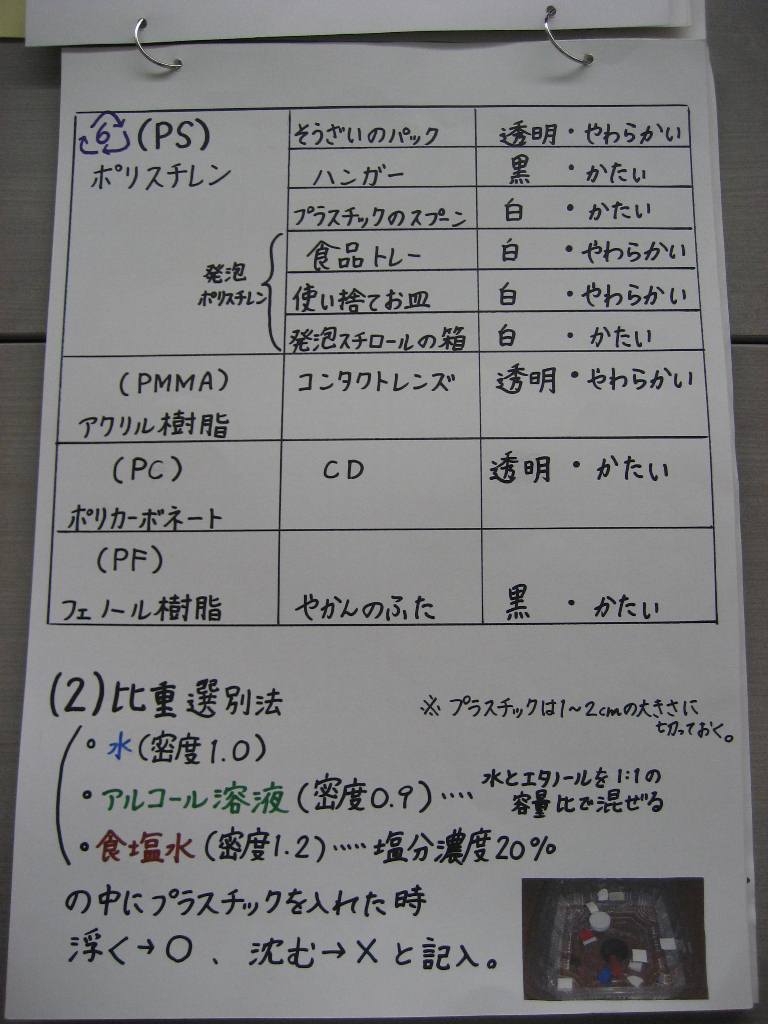 6 (PS) そうざいのパック 透明・やわらかい
ポリスチレン ハンガー 黒・かたい
プラスチックのスプーン 白・かたい
発泡ポリスチレン 食品トレー 白・やわらかい
使い捨てお皿 白・やわらかい
発泡スチロールの箱 白・かたい
(PMMA) コンタクトレンズ 透明・やわらかい
アクリル樹脂
(PC) CD 透明・かたい
ポリカーボネート
(PF)
フェノール樹脂 やかんのふた 黒・かたい
(2)比重選別法
※プラスチックは1~2cmの大きさに
切っておく。
・水(密度1.0)
・アルコール溶液(密度0.9)‥‥水とエタノールを1:1の
容量比で混ぜる
・食塩水(密度1.2)‥‥‥塩分濃度20%
の中にプラスチックを入れた時
浮く→○、沈む→×と記入。